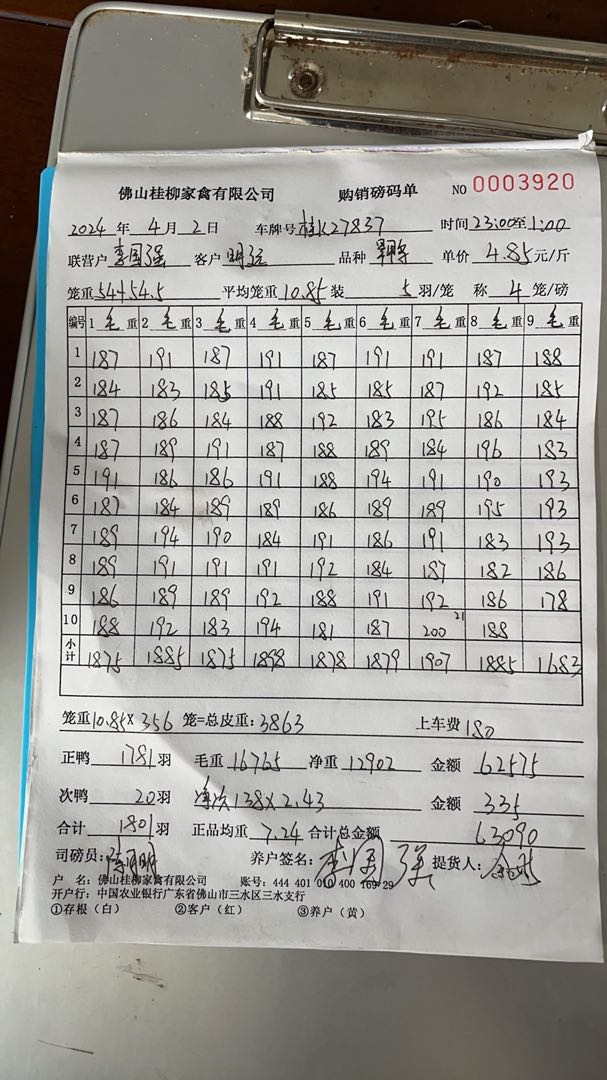 佛山桂柳家禽有限公司 购销磅码单 NO 0003920
2024 年 4 月 2 日 车牌号 桂K27837 时间 23:00至1:00
联营户 李国强 客户 明 品种 单价 4.85 元/斤
笼重 54+54.5 平均笼重 10.85 装 5 羽/笼 称 4 笼/磅
编号 1 毛 重 2 毛 重 3 毛 重 4 毛 重 5 毛 重 6 毛 重 7 毛 重 8 毛 重 9 毛 重
1 187 191 187 191 187 191 191 187 188
2 184 183 185 191 185 185 187 192 185
3 187 186 184 188 192 183 195 186 184
4 187 189 191 187 188 189 184 196 183
5 191 186 186 191 188 194 191 190 193
6 187 184 189 189 186 189 189 195 193
7 189 194 190 184 191 186 191 183 193
8 189 191 191 191 192 184 187 182 186
9 186 189 189 192 188 191 192 186 178
10 188 192 183 194 181 187 200 21 188
小计 1875 1885 1875 1898 1878 1879 1907 1885 1683
笼重 10.85 X 356 笼=总皮重: 3863 上车费 180
正鸭 1781 羽 毛重 16765 净重 12902 金额 62575
次鸭 20 羽 138 X 2.43 金额 335
合计 1801 羽 正品均重 7.24 合计总金额 63090
司磅员: 养户签名: 李国强 提货人:
户 名: 佛山桂柳家禽有限公司 账号: 444 401 010 400 169 29
开户行: 中国农业银行广东省佛山市三水区三水支行
①存根（白） ②客户（红） ③养户（黄）